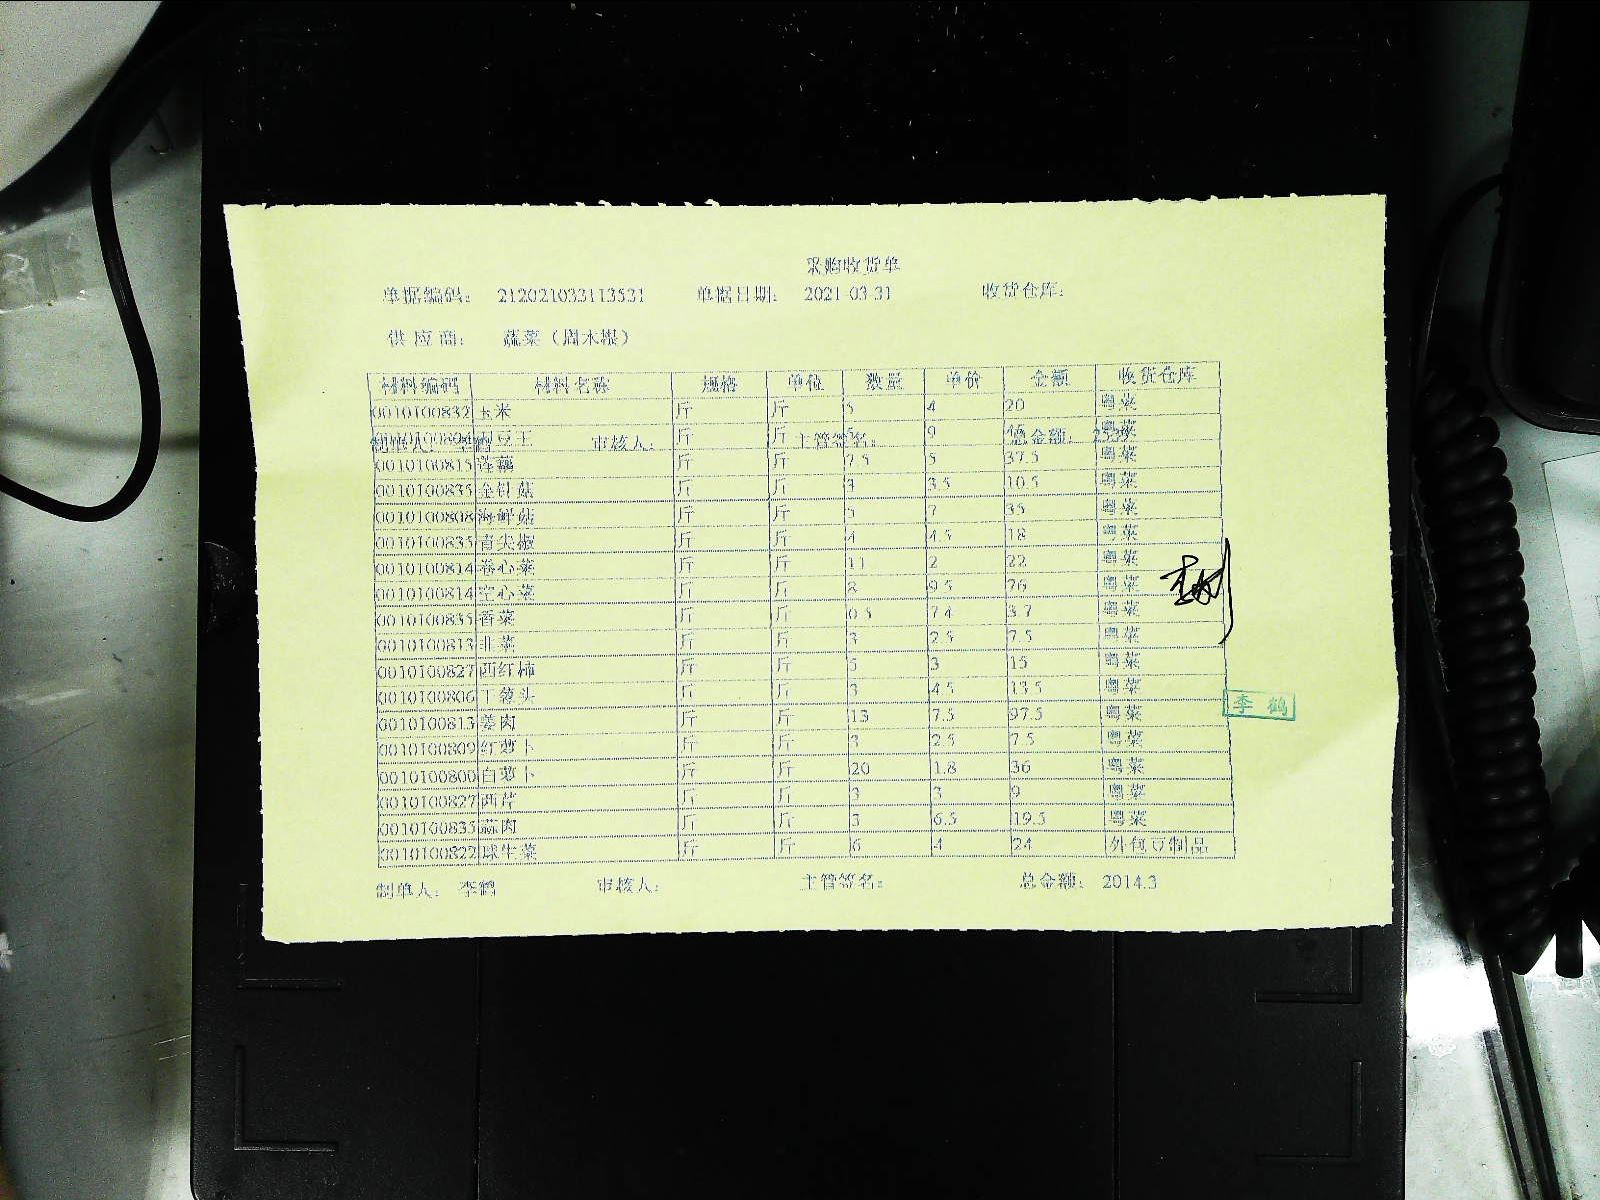 采购收货单
单据编码： 212021033113531 单据日期： 2021-03-31 收货仓库：
供应商： 蔬菜（周木根）
材料编码 材料名称 规格 单位 数量 单价 金额 收货仓库
0010100832 玉米 斤 斤 5 4 20 粤菜
斤 斤 9 粤菜
审核人： 主管签名： 总金额：
0010100815 莲藕 斤 斤 7.5 5 37.5 粤菜
0010100835 金针菇 斤 斤 3 3.5 10.5 粤菜
0010100808 海鲜菇 斤 斤 5 7 35 粤菜
0010100835 青尖椒 斤 斤 4 4.5 18 粤菜
0010100814 卷心菜 斤 斤 11 2 22 粤菜
0010100814 空心菜 斤 斤 8 9.5 76 粤菜
0010100835 香菜 斤 斤 0.5 7.4 3.7 粤菜
0010100813 韭菜 斤 斤 3 2.5 7.5 粤菜
0010100827 西红柿 斤 斤 5 3 15 粤菜
0010100806 干葱头 斤 斤 3 4.5 13.5 粤菜
0010100813 姜肉 斤 斤 13 7.5 97.5 粤菜
0010100809 红萝卜 斤 斤 3 2.5 7.5 粤菜
0010100800 白萝卜 斤 斤 20 1.8 36 粤菜
0010100827 西芹 斤 斤 3 3 9 粤菜
0010100835 蒜肉 斤 斤 3 6.5 19.5 粤菜
0010100822 球生菜 斤 斤 6 4 24 外包豆制品
制单人： 李鹤 审核人： 主管签名： 总金额： 2014.3
李鹤